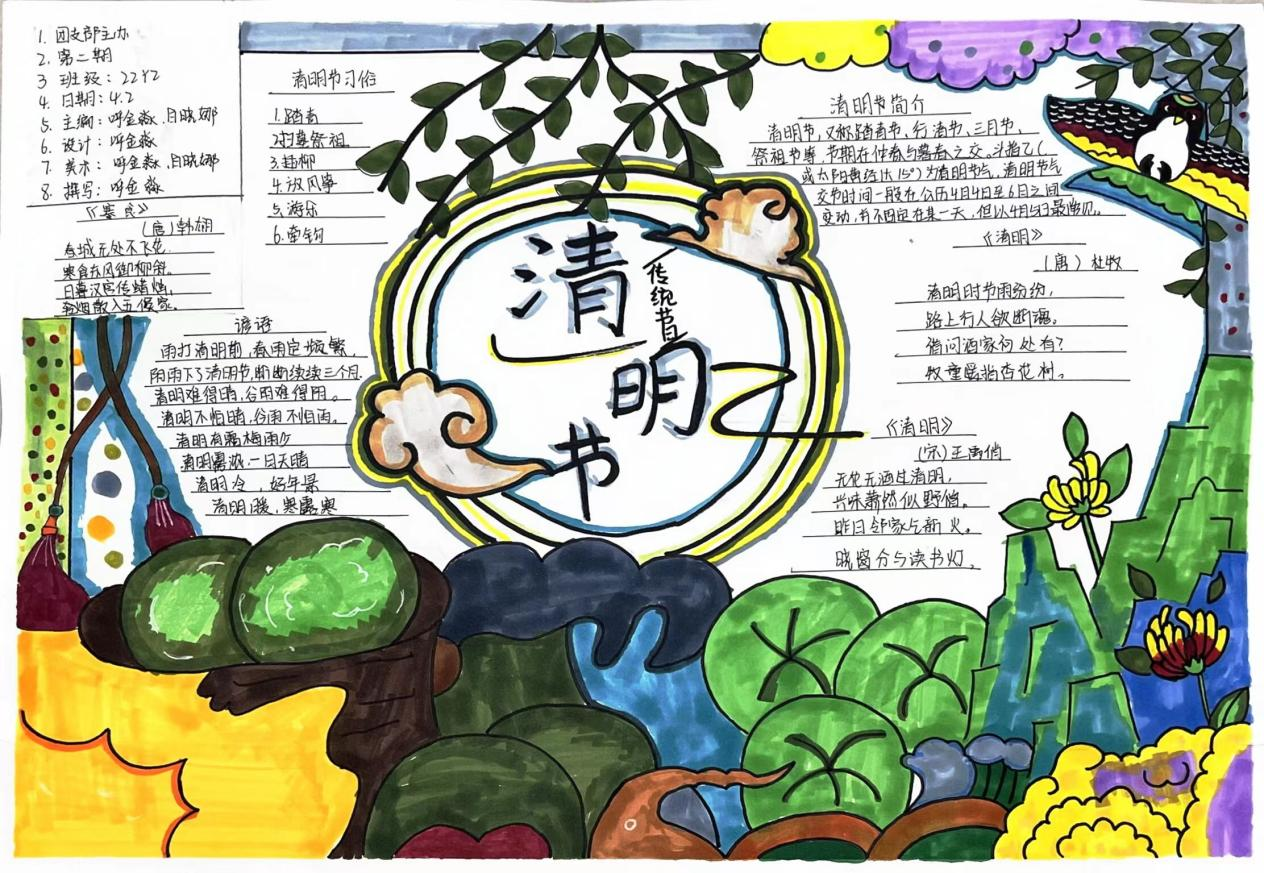 1. 团支部主办
2. 第二期
3 班级：22Y2
4. 日期：4.2
5. 主编：呼金淼、吕晓娜
6. 设计：呼金淼
7. 美术：呼金淼、吕晓娜
8. 撰写：呼金淼
《寒食》
(唐)韩翃
春城无处不飞花，
寒食东风御柳斜。
日暮汉宫传蜡烛，
轻烟散入五侯家。
谚语
雨打清明前，春雨定频繁，
阴雨下了清明节，断断续续三个月
清明难得晴，谷雨难得阴。
清明不怕晴，谷雨不怕雨。
清明有霜梅雨少
清明雾浓，一日天晴
清明冷，好年景
清明暖，寒露寒
清明节习俗
1.踏青
2.扫墓祭祖
3.插柳
4.放风筝
5.游乐
6.牵钩
清
明
节
传统节日
清明节简介
清明节，又称踏青节、行清节、三月节、
祭祖节等，节期在仲春与暮春之交。斗指乙（
或太阳黄经达15°）为清明节气，清明节气
交节时间一般在公历4月4日至6日之间
变动，并不固定在某一天，但以4月
《清明》
(唐）杜牧
清明时节雨纷纷，
路上行人欲断魂。
借问酒家何处有？
牧童遥指杏花村。
《清明》
(宋)王禹偁
无花无酒过清明，
兴味萧然似野僧。
昨日邻家乞新火，
晓窗分与读书灯。